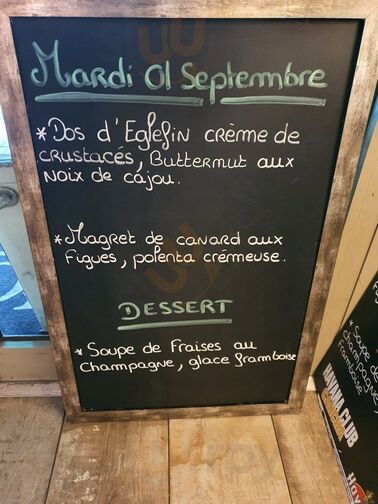 Mardi 01 Septembre
*Dos d'Eglefin crème de
crustacés, Butternut aux
Noix de cajou.
*Magret de canard aux
Figues, polenta crémeuse.
DESSERT
*Soupe de Fraises au
Champagne, glace framboise
*Soupe de
champagne,
framboise
HAVANA CLUB